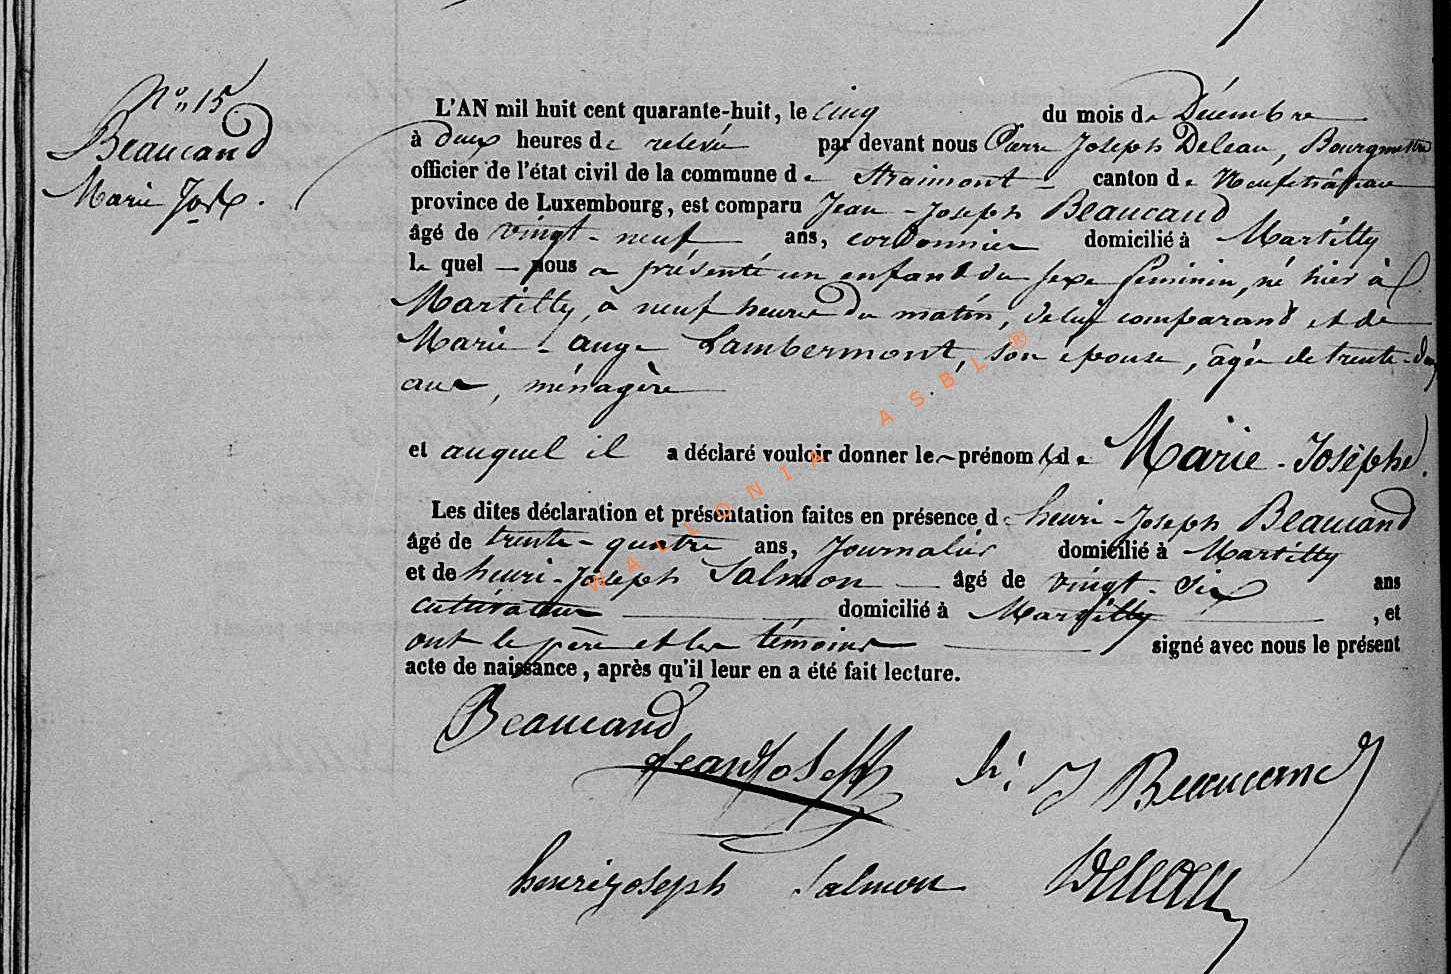 N° 15
Beaucand
Marie Jos.
L'AN mil huit cent quarante-huit, le cinq du mois de Décembre
à deux heures de relevée par devant nous Pierre Joseph Deleau, Bourgmestre
officier de l'état civil de la commune de Straimont canton de Neufchâteau
province de Luxembourg, est comparu Jean-Joseph Beaucand
âgé de vingt-neuf ans, cordonnier domicilié à Martilly
le quel nous a présenté un enfant du sexe féminin, né hier à
Martilly, à neuf heures du matin, de lui comparant et de
Marie-Ange Lambermont, son épouse, âgée de trente-deux
ans, ménagère
et auquel il a déclaré vouloir donner les prénoms de Marie-Josèphe.
Les dites déclaration et présentation faites en présence de henri-Joseph Beaucand
âgé de trente-quatre ans, Journalier domicilié à Martilly
et de henri-Joseph Salmon âgé de vingt-six ans
cultivateur domicilié à Martilly, et
ont le père et les témoins signé avec nous le présent
acte de naissance, après qu'il leur en a été fait lecture.
Beaucand
jean Joseph h: J Beaucand
henri joseph Salmon Deleau
WALLONIA ASBL ®